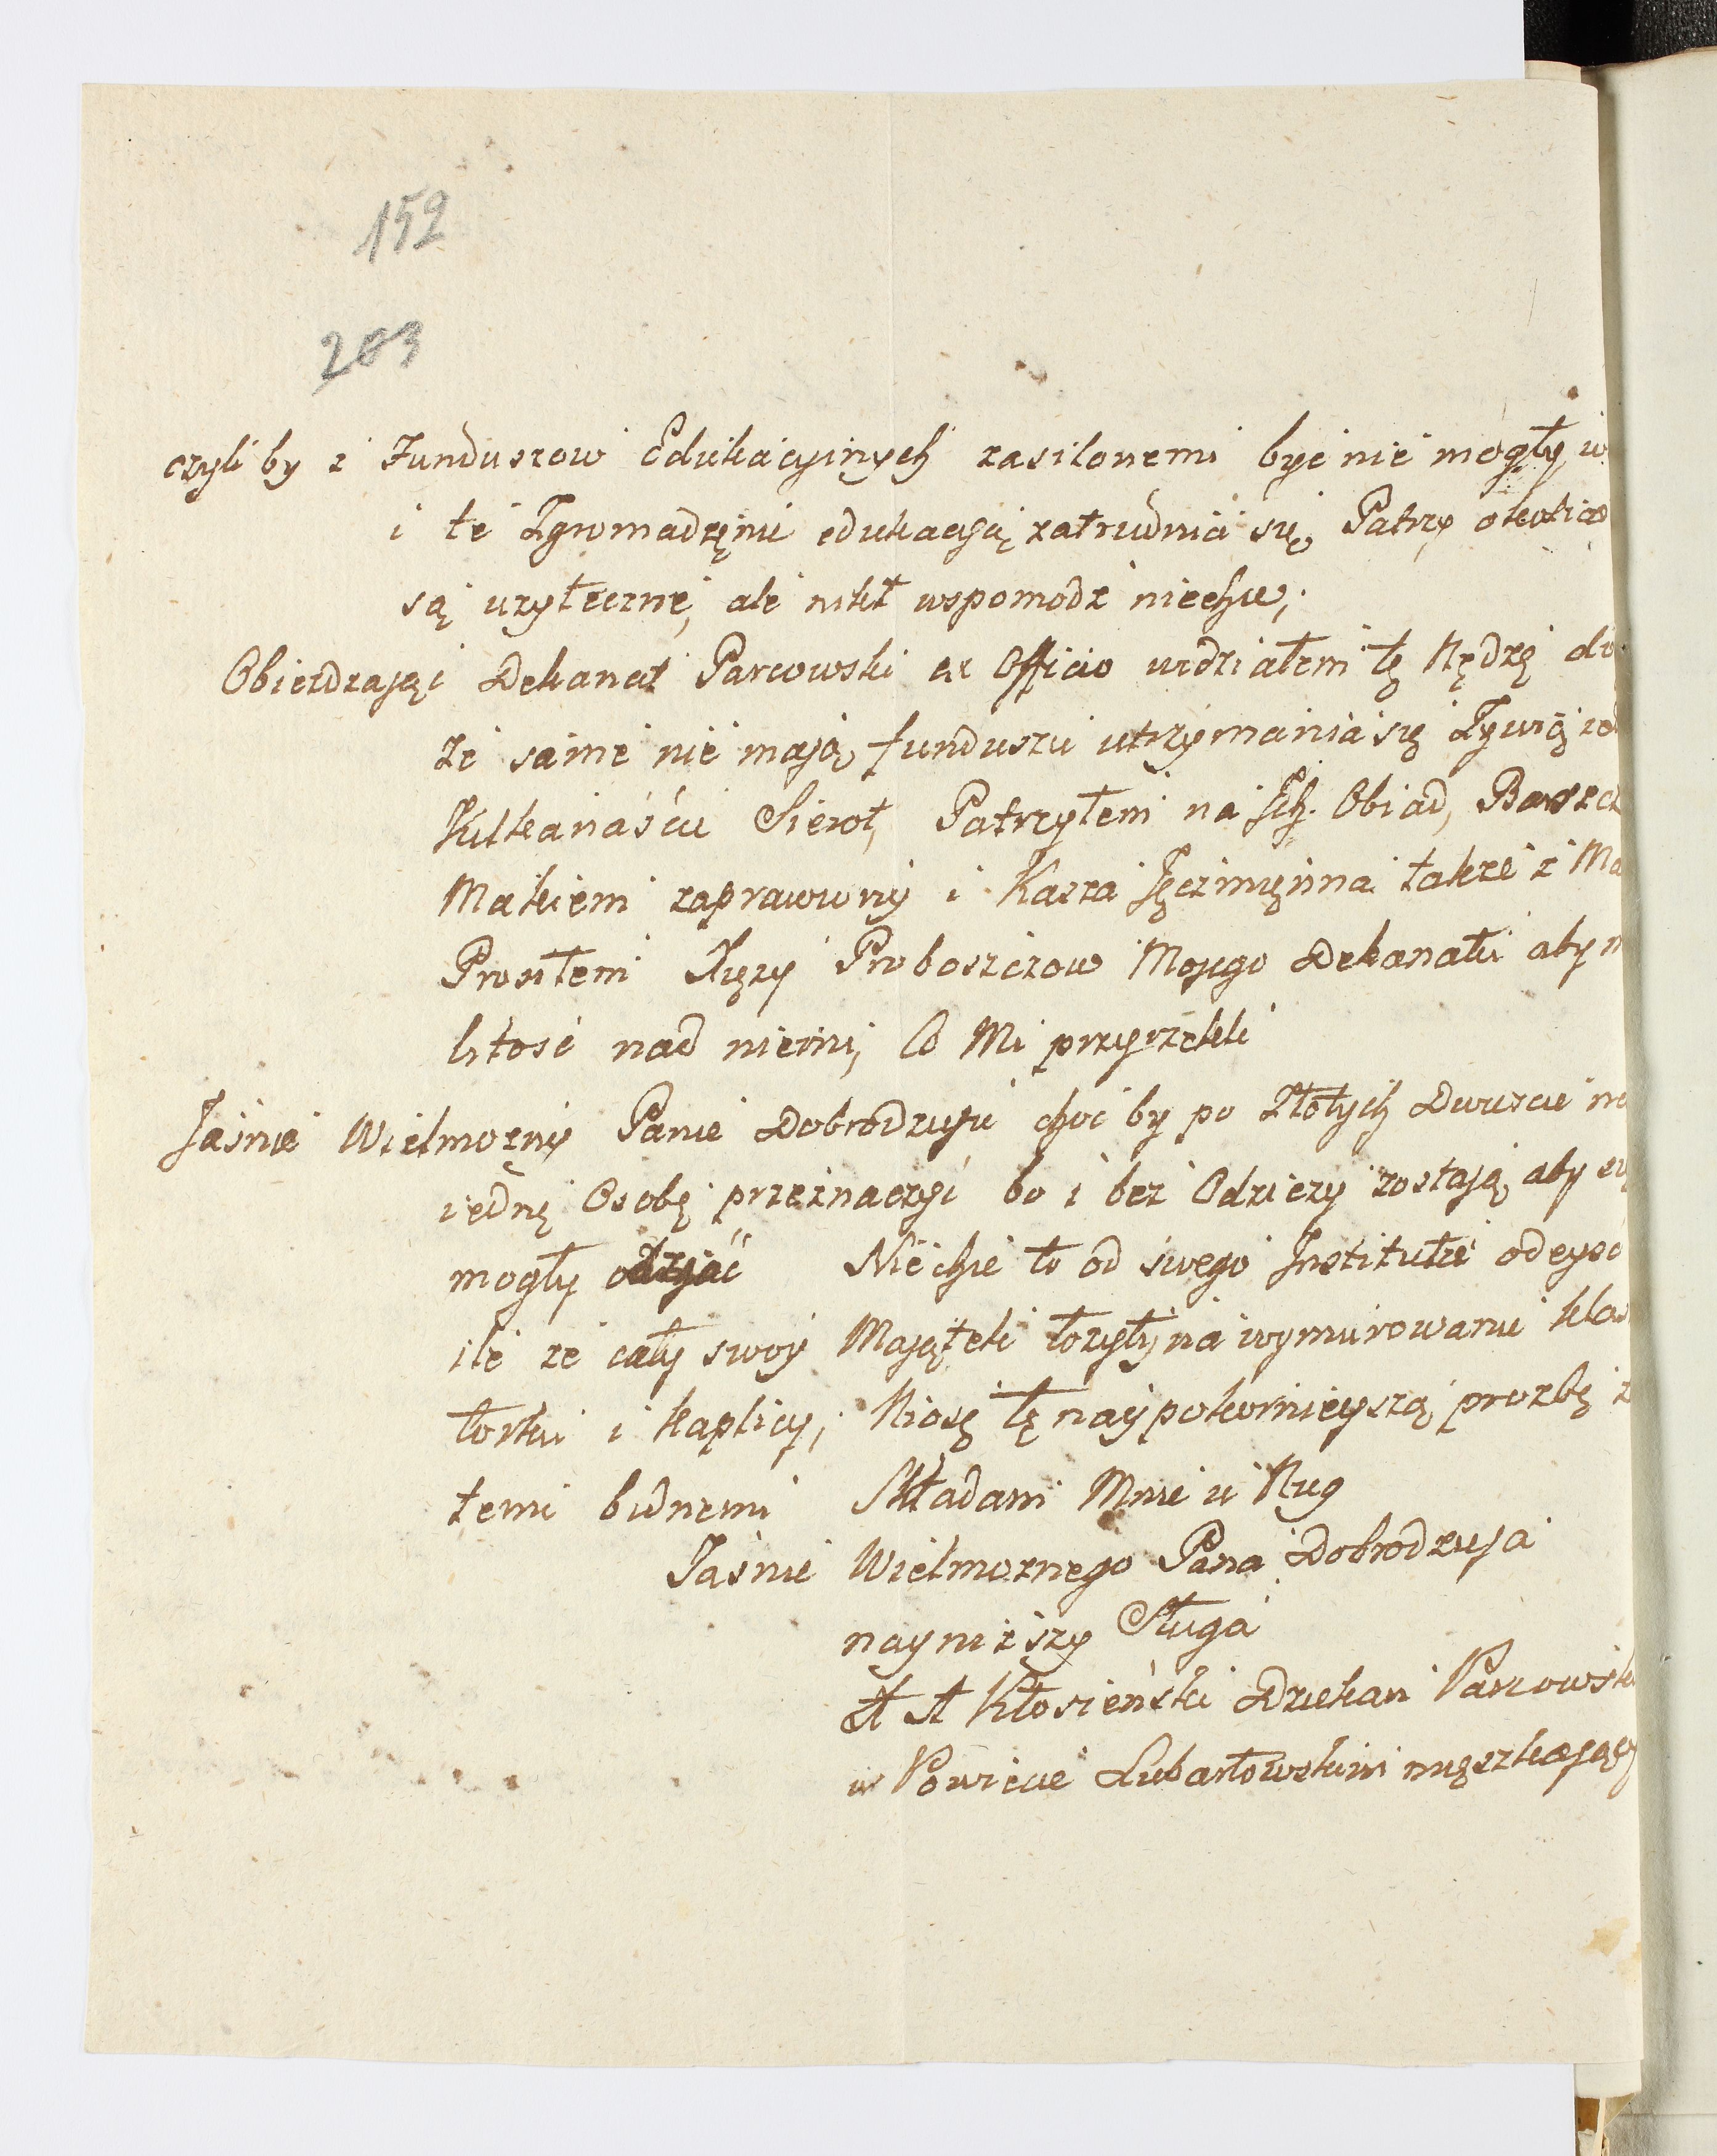 152
203
czyli by z Funduszow Edukacyinych zasilonemi być nie mogły w
i te Zgromadzęnie edukacyią zatrudnia się, Patrzy okolica
są uzyteczne, ale nikt wspomodz niechce;
Obiezdzając Dekanat Parcowski ex Officio widziałem tę Nędzę
ze same nie mają funduszu utrzymania się Zywią
Kilkanaście Sierot, Patrzyłem na Jch. Obiad, Barszcz
Makiem zaprawiony i Kasza Jęczmięnna takze z Ma
Prosiłem Xięzy Proboszczow Mojego Dekanatu aby m
litość nad niemi, Co Mi przyrzekli
Jaśnie Wielmozny Panie Dobrodzieju choc by po Złotych Dwuscie na
iednę Osobę przeznaczyć bo i bez Odziezy zostają, aby się
mogły odziać Nie chce to od swego Jnstitutu odeyść
ile ze cały swoy Majątek łozyły na wymurowanie klas
torku i kaplicy; Niosę tę naypokornieyszą prozbę z
temi biednemi Składam Mnie u Nug
Jaśnie Wielmoznego Pana Dobrodzieja
naynizszy Sługa
X A Kłosieński Dziekan Parcowski
w Powiecie Lubartowskim męszkający